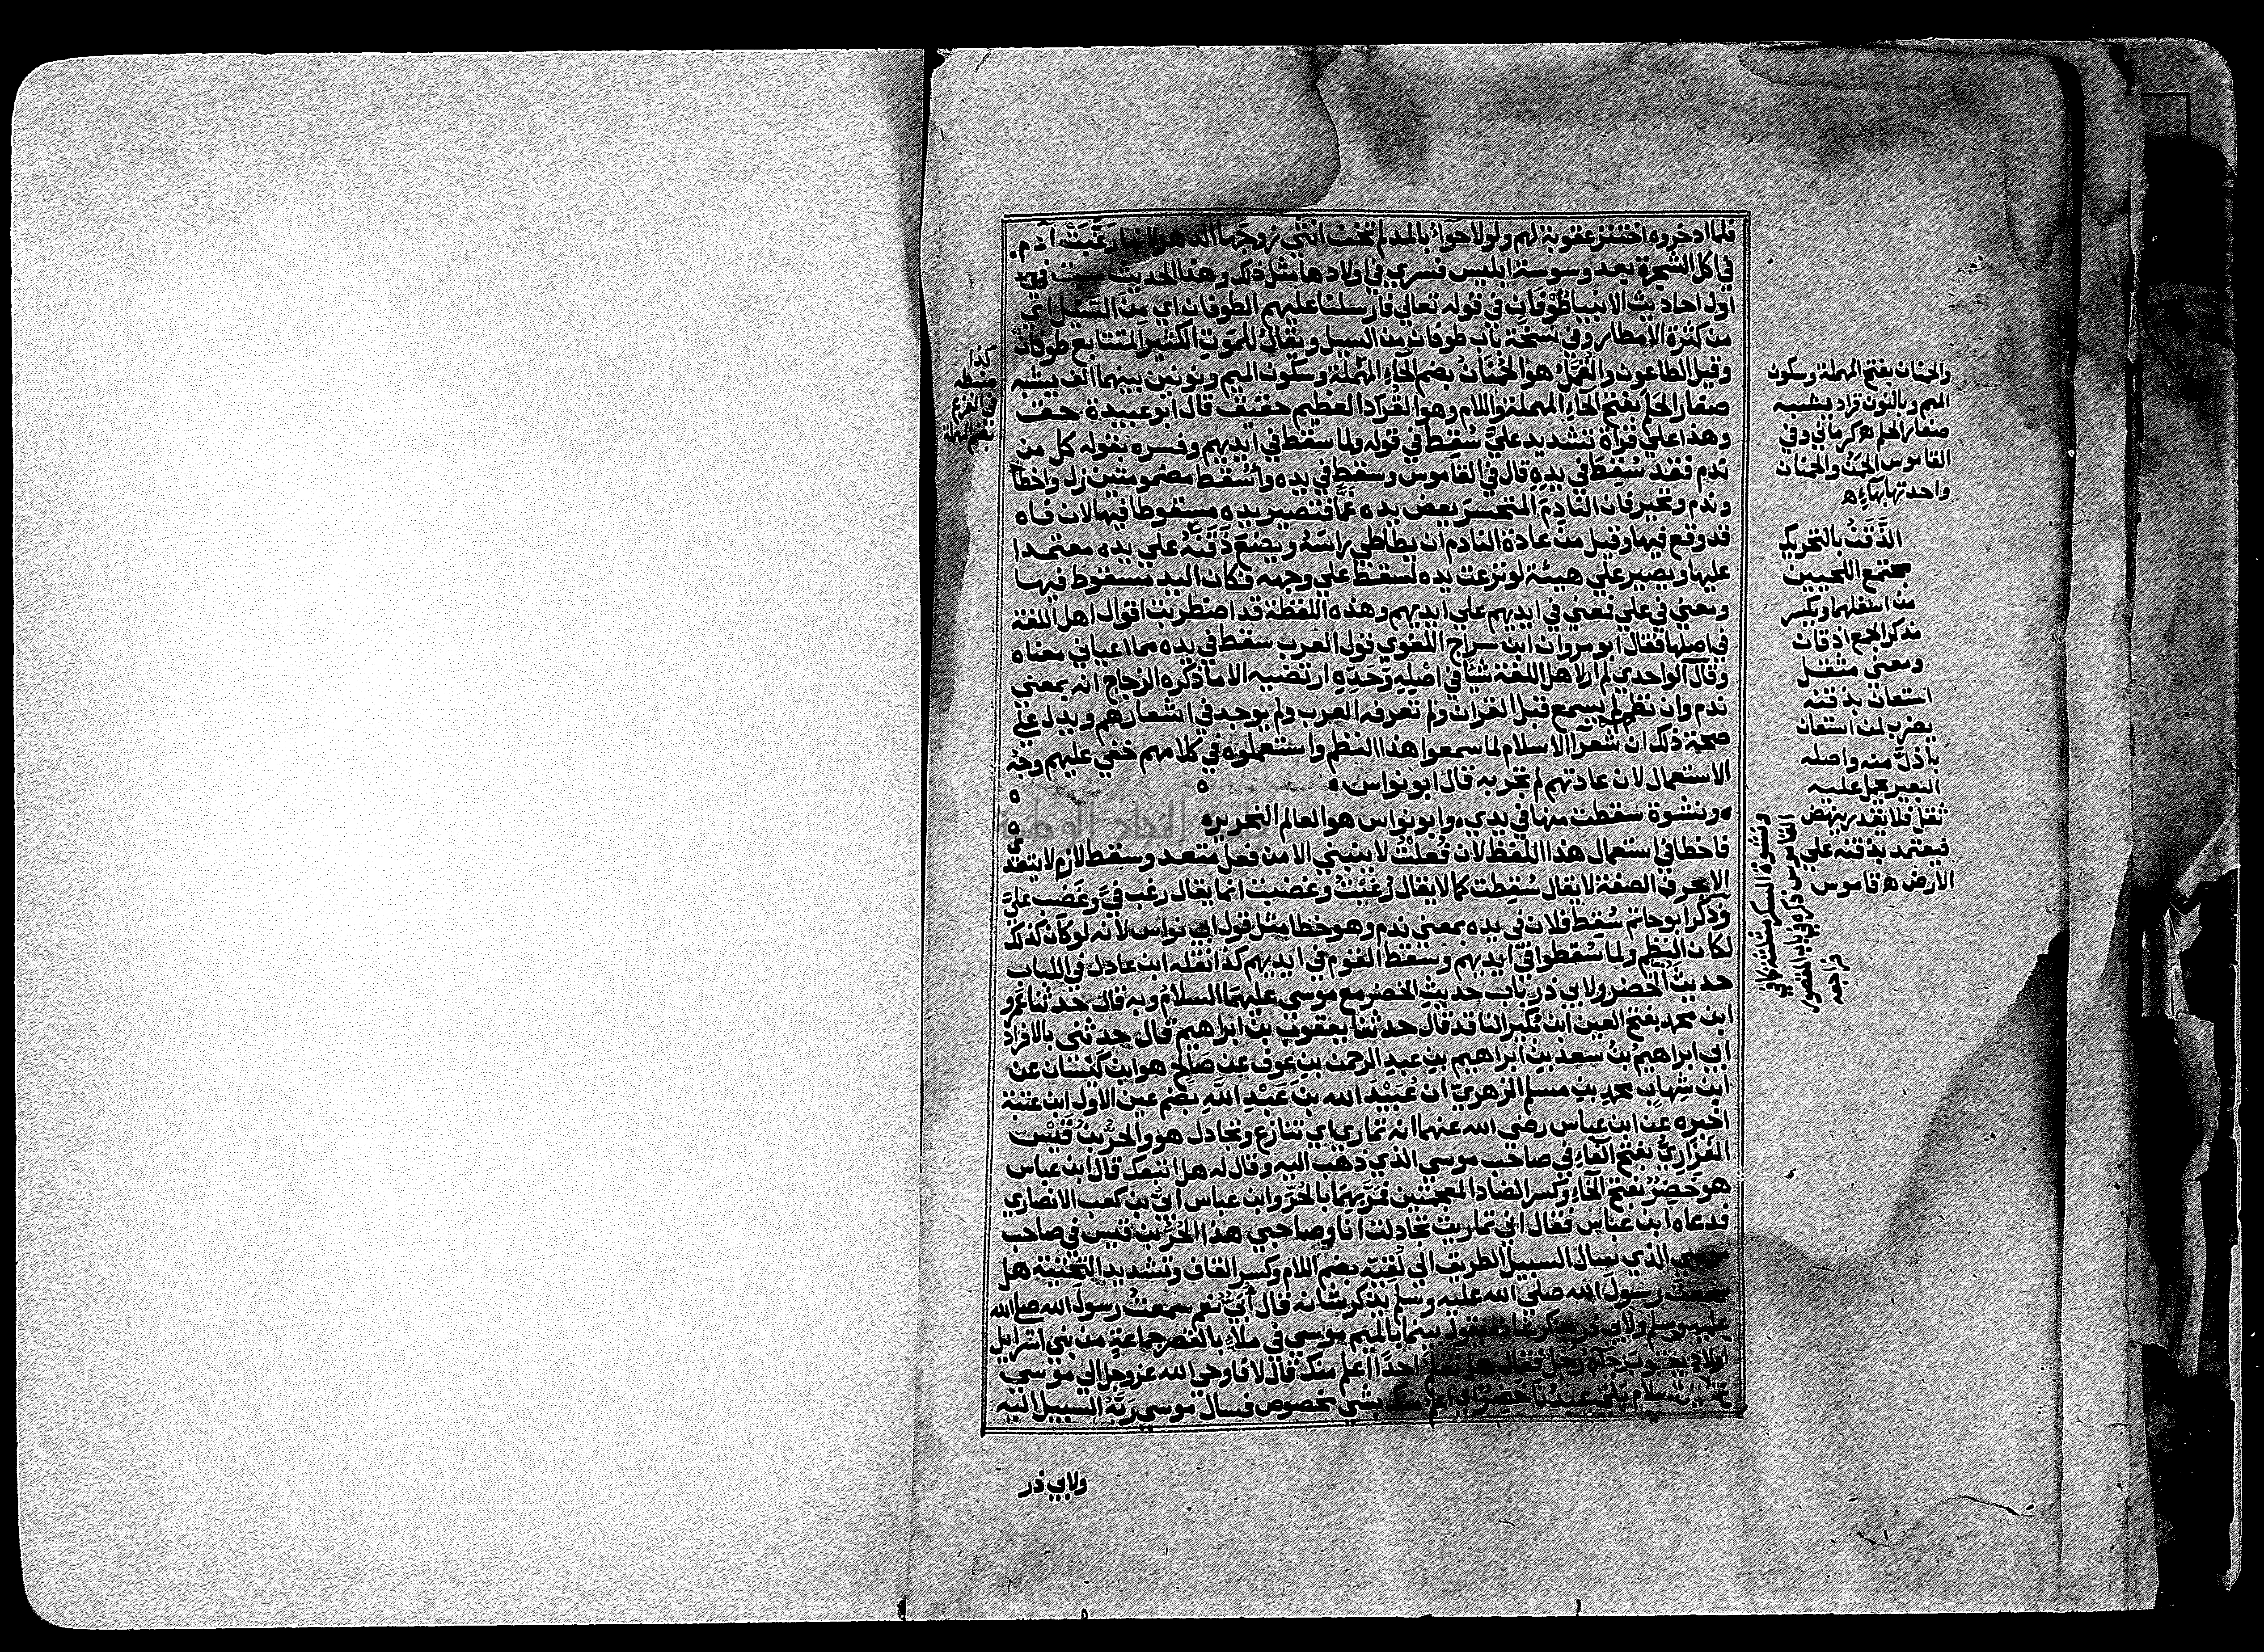 فلما ادخروه اختنز عقوبة لهم ولولا حواء بالمد لم تخن انثى زوجها الدهر لانها رغبت آدم
في اكل الشجرة بعد وسوسة ابليس فسري في اولادها مثل ذلك وهذا الحديث سبق في
اول احاديث الانبيا طُوفَان في قوله تعالي فارسلنا عليهم الطوفان اي من السَّيْل اي
من كثرة الامطار وفي نسخة باب طوفان من السيل ويقال للموت الكثير المتتابع طوفان
وقيل الطاعون والقُمَّل هو الحُمْنَانُ بضم الحاء المهملة وسكون الميم ونونين بينهما الف يشبه
صغار الحَلَم بفتح الحاء المهملة واللام وهو القراد العظيم حقيق قال ابو عبيدة حق
وهذا علي قراة تشديد عليَّ سُقِط في قوله ولما سقط في ايديهم وفسره بقوله كل من
ندم فقد سُقِطَ في يدِهِ قال في القاموس وسقط في يده وأُسْقط مضمومتين زل واخطا
وندم وتحير فان النادِمَ المتحسرَ يعض يده غمًّا فتصير يده مسقوطا فيها لان فاه
قد وقع فيها وقيل من عادة النادم ان يطاطي راسَهُ ويضعَ ذَقَنَهُ علي يده معتمدا
عليها ويصير علي هيئة لو نزعت يده لسقط علي وجهه فكان اليد مسقوط فيها
ومعني في علي فمعني في ايديهم علي ايديهم وهذه اللفظة قد اضطربت اقوال اهل اللغة
في اصلها فقال ابو مروان ابن سراج اللغوي قول العرب سقط في يده مما اعياني معناه
وقال الواحدي لم أر لاهل اللغة شيأ في اصلِهِ وَحَدِّهِ ارتضيه الا ما ذكره الزجاج انه بمعني
ندم وان نظم لم يسمع قبل القران ولم تعرفه العرب ولم يوجد في اشعارهم ويدل علي
صحة ذلك ان شعرآ الاسلام لما سمعوا هذا النظم واستعملوه في كلامهم خفي عليهم وجه
الاستعمال لان عادتهم لم تجر به قال ابو نواس
ونشوة سقطت منها في يدي وابو نواس هو العالم النحرير
فاخطا في استعمال هذا اللفظ لان فُعِلْتُ لا يبني الا من فعل متعد وسقط لازم لا يتعدي
الا بحرف الصفة لا يقال سُقِطت كما لا يقال رُغِبْتُ وغضبت انما يقال رغب فيَّ وغَضِب عليَّ
وذكر ابو حاتم سُقِط فلان في يده بمعني ندم وهو خطا مثل قول ابي نواس لانه لو كان كذلك
لكان النظم ولما سُقطوا في ايديهم وسقط القوم في ايديهم كذا نقله ابن عادل في اللباب
حديث الخضر ولابي ذر باب حديث الخضر مع موسي عليهما السلام وبه قال حدثنا عَمرو
ابن محمد بفتح العين ابن بُكير الناقد قال حدثنا يعقوب بن ابراهيم قال حدثني بالافراد
ابي ابراهيم بنُ سعد بنِ ابراهيم بنِ عبدِ الرحمن بنِ عوف عن صَالح هو ابن كَيْسان عن
ابن شِهابٍ محمدِ بنِ مسلم الزهريّ ان عُبَيْدَ الله بنِ عَبْدِ اللهِ بضم عين الاول ابن عتبة
اخبره عن ابن عباس رضي الله عنهما انه تماري اي تنازع وتجادل هو والحُرُّ بنُ قَيْس
الفَزَاريُّ بفتح الفاء في صاحب موسي الذي ذهب اليه وقال له هل اتبعك قال ابن عباس
هو خَضِرٌ بفتح الخاء وكسر الضاد المعجمتين فمَرَّ بهما بالحُرِّ وابن عباس أبيُّ بن كعب الانصاري
فدعاه ابن عباس فقال اني تماريت تجادلت انا وصاحبي هذا الحُرُّ بن قيس في صاحب
موسي الذي سال السبيل الطريق الي لُقِيِّه بضم اللام وكسر القاف وتشديد التحتية هل
سمعت رسول الله صلي الله عليه وسلم يذكر شانه قال أُبيٌّ نعم سمعت رسول الله صلي الله
عليه وسلم ولابي ذر يذكر شانه يقول بينما بالميم موسي في ملاءٍ بالقصر جماعةٍ من بني اسرايل
اولاد يعقوب جاءه رجل فقال هل تعلم احدًا اعلم منك قال لا فاوحي الله عز وجل الي موسي
السلام بلي عبدُنا خَضِرٌ اي اعلم منك بشي مخصوص فسال موسي رَبَّهُ السبيل اليه
ولابي ذر
كذا
ضبطه
في الفرع
بضم المهملة
والحمنان بفتح المهملة وسكون
الميم وبالنون قراد يشبه
صغار الحلم اهـ كرماني وفي
القاموس الحَمْنُ والحمنان
واحدتها بهاء اهـ
الذَّقَنُ بالتحريك
مجتمع اللحيين
من اسفلهما ويكسر
مذكر الجمع اذقان
ومعني مثقل
استعان بذقنه
يضرب لمن استعان
باذلَّ منه واصله
البعير يحمل عليه
ثقل فلا يقدر ينهض
فيعتمد بذقنه علي
الارض اهـ قاموس
ونشوة السكر مثلثة كما في
القاموس ذكره في باب المقصور
فراجعه
النجاح الوطنية